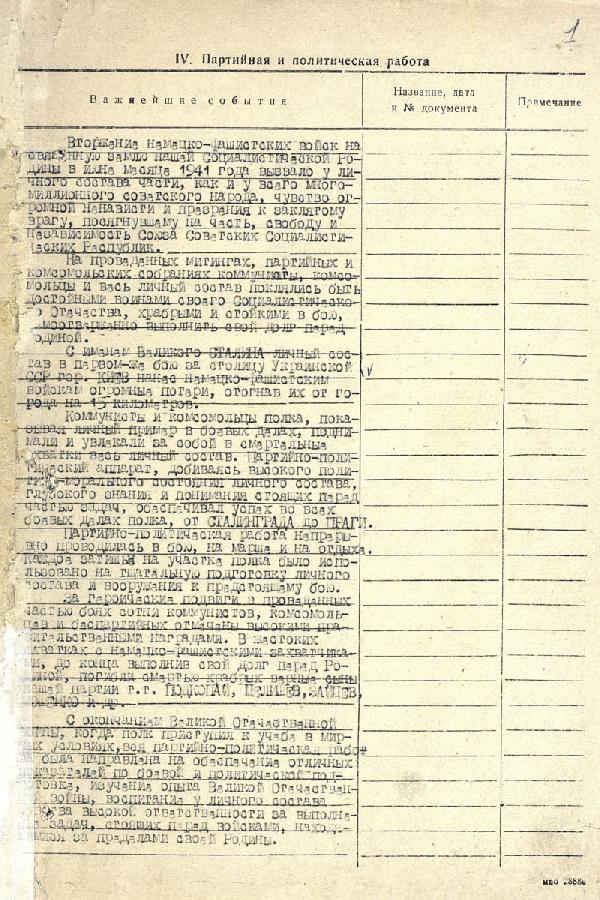 1
IV. Партийная и политическая работа
Важнейшие события
Название, дата
и № документа
Примечание
Вторжение немецко-фашистских войск на
священную землю нашей Социалистической Ро-
дины в июне месяце 1941 года вызвало у ли-
чного состава части, как и у всего много-
миллионного советского народа, чувство ог-
ромной ненависти и презрения к заклятому
врагу, посягнувшему на честь, свободу и
независимость Союза Советских Социалисти-
ческих Республик.
На проведенных митингах, партийных и
комсомольских собраниях коммунисты, комсо-
мольцы и весь личный состав поклялись быть
достойными воинами своего Социалистическо-
го Отечества, храбрыми и стойкими в бою,
самоотверженно выполнить свой долг перед
Родиной.
С именем Великого СТАЛИНА личный сос-
тав в первом-же бою за столицу Украинской
ССР гор. КИЕВ нанес немецко-фашистским
войскам огромные потери, отогнав их от го-
рода на 15 километров.
Коммунисты и комсомольцы полка, пока-
зывая личный пример в боевых делах, подни-
мали и увлекали за собой в смертельные
схватки весь личный состав. Партийно-поли-
тический аппарат, добиваясь высокого поли-
тико-морального состояния личного состава,
глубокого знания и понимания стоящих перед
частью задач, обеспечивал успех во всех
боевых делах полка, от СТАЛИНГРАДА до ПРАГИ.
Партийно-политическая работа непреры-
вно проводилась в бою, на марше и на отдыхе.
Каждое затишье на участке полка было испо-
льзовано на тщательную подготовку личного
состава и вооружения к предстоящему бою.
За героические подвиги в проведенных
частью боях сотни коммунистов, комсомоль-
цев и беспартийных отмечены высокими пра-
вительственными наградами. В жестоких
схватках с немецко-фашистскими захватчика-
ми, до конца выполнив свой долг перед Ро-
диной, погибли смертью храбрых верные сыны
нашей партии т.т. ПОДКОПАЙ, ПЕЛИШЕВ, ЗАЙЦЕВ,
и др.
С окончанием Великой Отечественной
войны, когда полк приступил к учебе в мир-
ных условиях, вся партийно-политическая работ
а была направлена на обеспечение отличных
показателей по боевой и политической под-
готовке, изучение опыта Великой Отечествен-
ной войны, воспитание у личного состава
чувства высокой ответственности за выполне-
ние задач, стоящих перед войсками, находя-
щимися за пределами своей Родины.